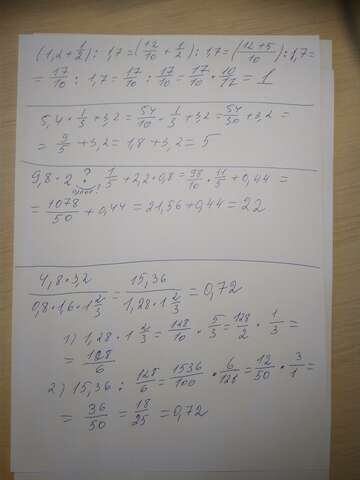 (1,2+1/2) : 1,7 = (12/10 + 1/2) : 1,7 = (12+5/10) : 1,7 =
= 17/10 : 1,7 = 17/10 : 17/10 = 17/10 * 10/17 = 1
5,4 * 1/3 + 3,2 = 54/10 * 1/3 + 3,2 = 54/30 + 3,2 =
= 9/5 + 3,2 = 1,8 + 3,2 = 5
9,8 * 2 ? 1/5 + 2,2 * 0,8 = 98/10 * 11/5 + 0,44 =
= 1078/50 + 0,44 = 21,56 + 0,44 = 22
4,8 * 3,2 / 0,8 * 1,6 * 1 2/3 = 15,36 / 1,28 * 1 2/3 = 0,72
1) 1,28 * 1 2/3 = 128/10 * 5/3 = 128/2 * 1/3 =
= 128/6
2) 15,36 : 128/6 = 1536/100 * 6/128 = 12/50 * 3/1 =
= 36/50 = 18/25 = 0,72